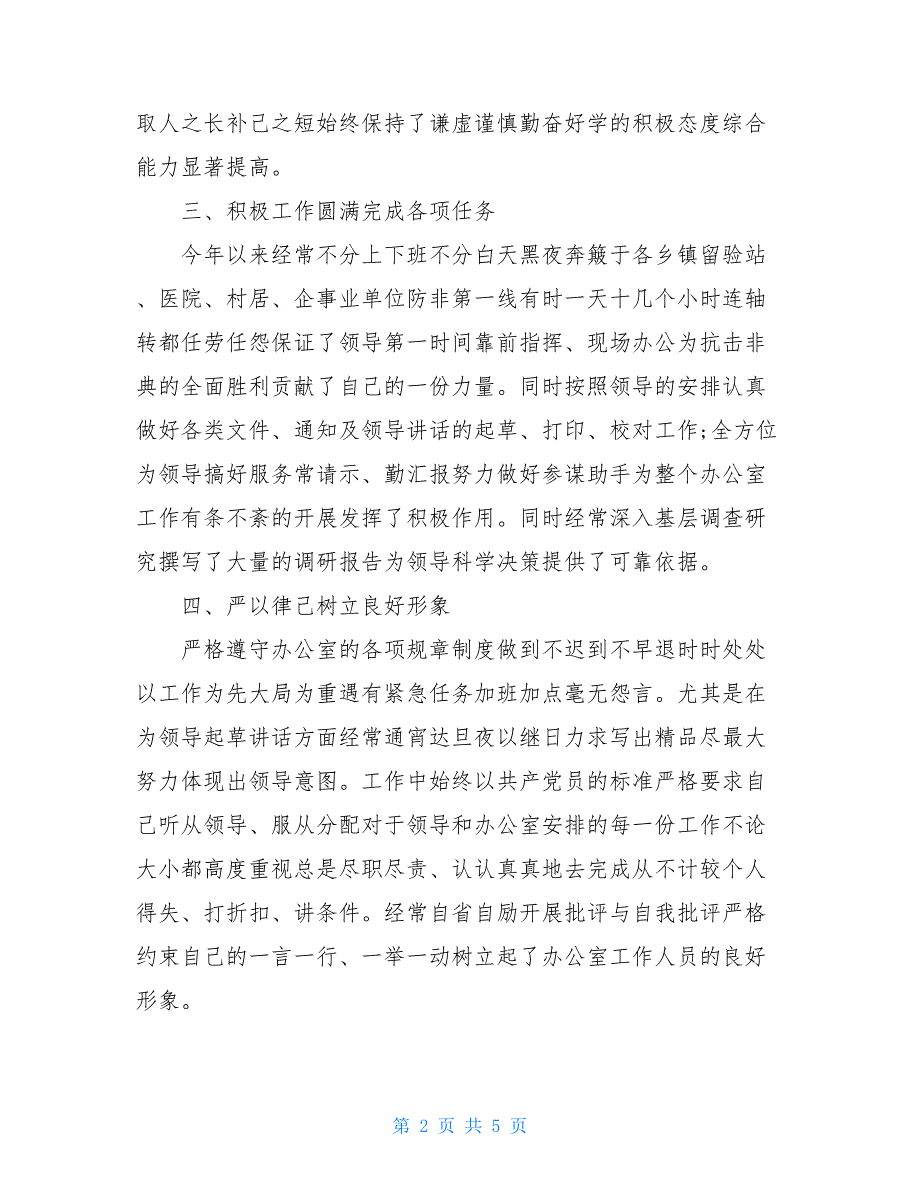 取人之长补己之短始终保持了谦虚谨慎勤奋好学的积极态度综合
能力显著提高。
三、积极工作圆满完成各项任务
今年以来经常不分上下班不分白天黑夜奔簸于各乡镇留验站
、医院、村居、企事业单位防非第一线有时一天十几个小时连轴
转都任劳任怨保证了领导第一时间靠前指挥、现场办公为抗击非
典的全面胜利贡献了自己的一份力量。同时按照领导的安排认真
做好各类文件、通知及领导讲话的起草、打印、校对工作;全方位
为领导搞好服务常请示、勤汇报努力做好参谋助手为整个办公室
工作有条不紊的开展发挥了积极作用。同时经常深入基层调查研
究撰写了大量的调研报告为领导科学决策提供了可靠依据。
四、严以律己树立良好形象
严格遵守办公室的各项规章制度做到不迟到不早退时时处处
以工作为先大局为重遇有紧急任务加班加点毫无怨言。尤其是在
为领导起草讲话方面经常通宵达旦夜以继日力求写出精品尽最大
努力体现出领导意图。工作中始终以共产党员的标准严格要求自
己听从领导、服从分配对于领导和办公室安排的每一份工作不论
大小都高度重视总是尽职尽责、认认真真地去完成从不计较个人
得失、打折扣、讲条件。经常自省自励开展批评与自我批评严格
约束自己的一言一行、一举一动树立起了办公室工作人员的良好
形象。
第 2 页 共 5 页